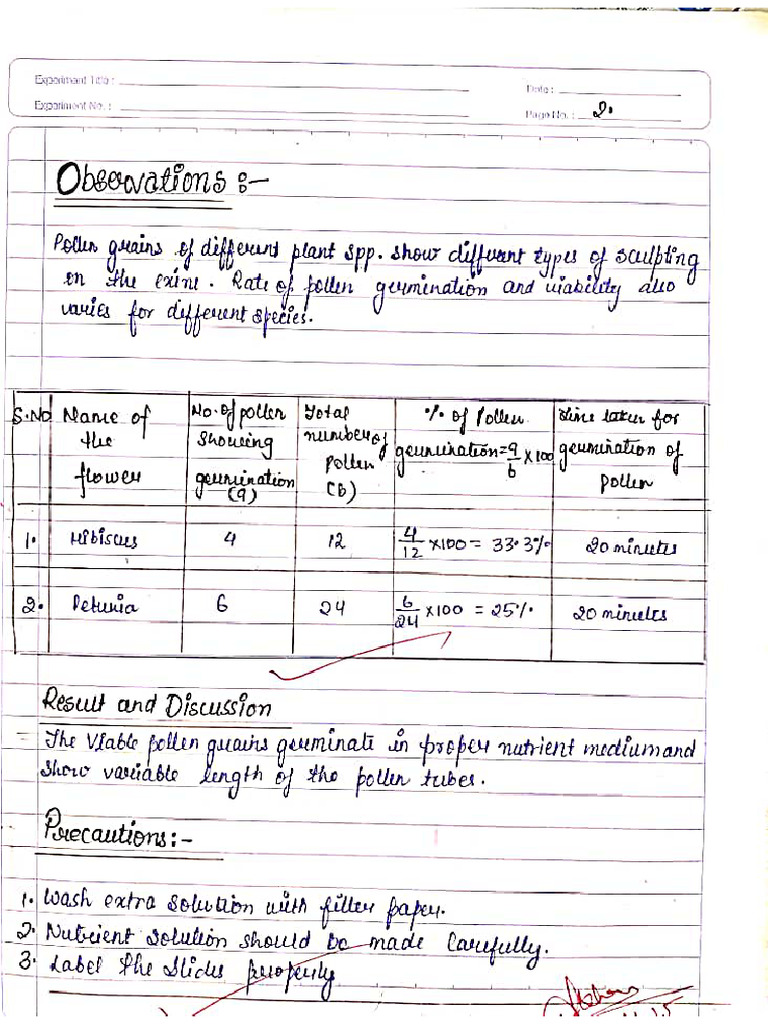 Experiment Title :
Date :
Experiment No. :
Page No. : 2.
Observations :-
Pollen grains of different plant spp. show different types of sculpting
on the exine. Rate of pollen germination and viability also
varies for different species.
S.No Name of the flower No. of pollen showing germination (a) Total number of pollen (b) % of Pollen germination = a/b x 100 Time taken for germination of pollen
1. Hibiscus 4 12 4/12 x100 = 33.3% 20 minutes
2. Petunia 6 24 6/24 x100 = 25% 20 minutes
Result and Discussion
The Viable pollen grains germinate in proper nutrient medium and
show variable length of the pollen tubes.
Precautions :-
1. Wash extra solution with filter paper.
2. Nutrient solution should be made carefully.
3. Label the slides properly